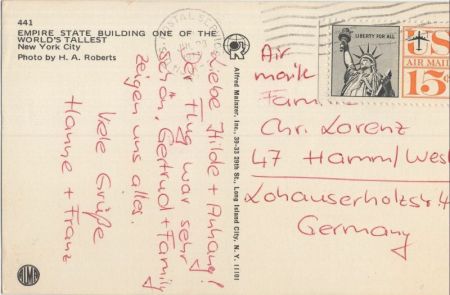 441
EMPIRE STATE BUILDING ONE OF THE
WORLD'S TALLEST
New York City
Photo by H. A. Roberts
Liebe Hilde + Anhang!
Der Flug war sehr
schön, Gertrud + Family
zeigen uns alles.
Viele Grüße
Hanne + Franz
Alfred Mainzer, Inc., 39-33 29th St., Long Island City, N. Y. 11101
POSTAL SERVICE
LIBERTY FOR ALL
US
AIR MAIL
15¢
Air
maile
Familie
Chr. Lorenz
47 Hamm/West
Lohauserholzstr 4
Germany